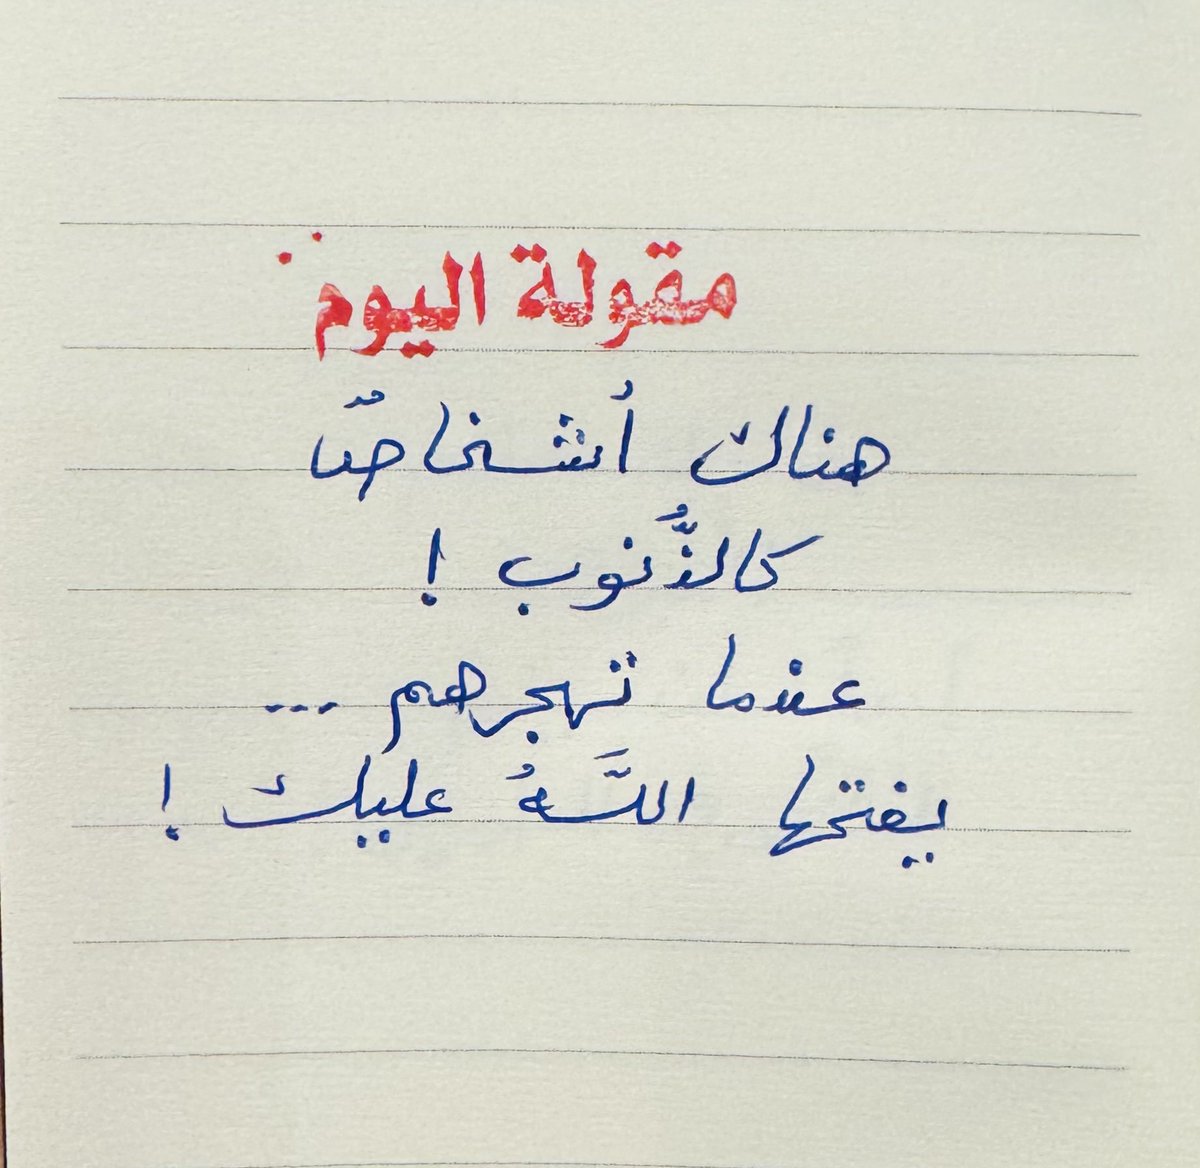 مقولة اليوم
هناك أشخاصٌ
كالذُّنوب !
عندما تهجرهم ...
يفتحها اللَّهُ عليك !